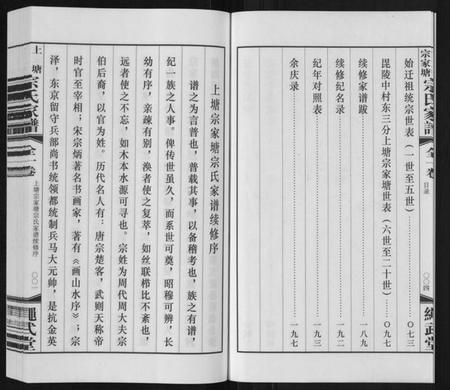 宗家塘宗氏家譜
全一卷
目录
〇〇四
繩武堂
始迁祖统宗世表（一世至五世）
〇七三
毘陵中村东三分上塘宗家塘世表（六世至二十世）
〇九七
续修家谱跋
一九一
续修纪名录
一九二
纪年对照表
一九三
余庆录
一九七
上塘
宗氏家譜
全一卷
上塘宗家塘宗氏家谱续修序
〇〇一
繩武堂
上塘宗家塘宗氏家谱续修序
谱之为言普也，普载其事，以备稽考也，族之有谱，
纪一族之人事。俾传世虽久，而系世可奠，昭穆可辨，长
幼有序，亲疎有别，涣者使之复萃，如丝联栉比不紊也，
远者使之不忘，如木本水源可寻也。宗姓为周代周大夫宗
伯后裔，以官为姓。历代名人有：唐宗楚客，武则天称帝
时官至宰相；宋宗炳著名书画家，著有《画山水序》；宗
泽，东京留守兵部尚书统领都统制兵马大元帅，是抗金英